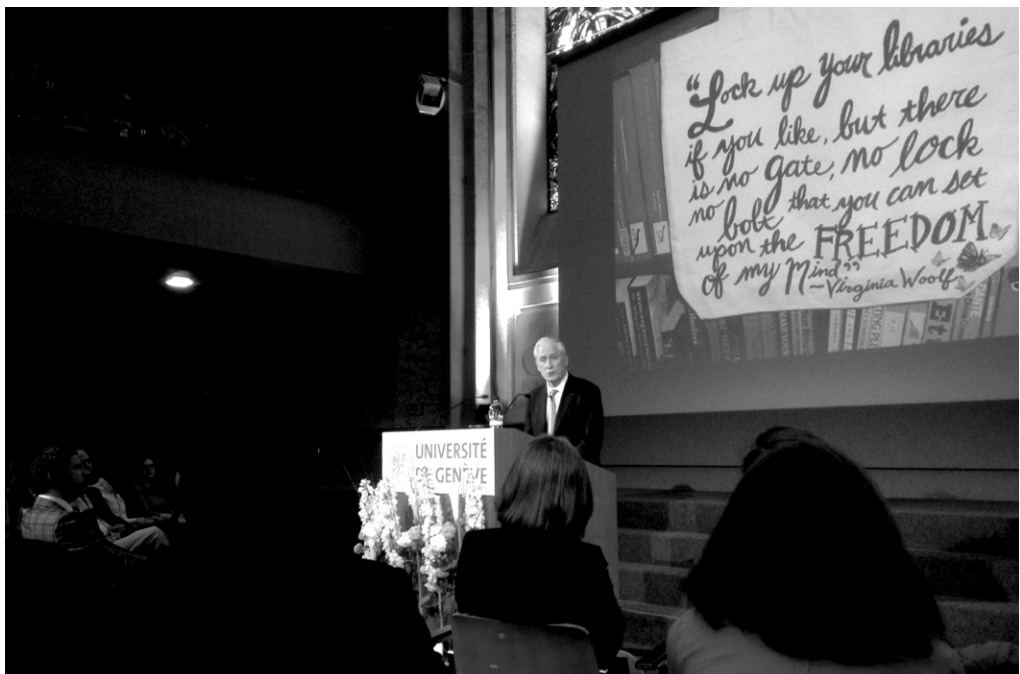 “Lock up your libraries
if you like, but there
is no gate, no lock
no bolt that you can set
upon the FREEDOM
of my Mind”
~Virginia Woolf
UNIVERSITÉ
DE GENÈVE